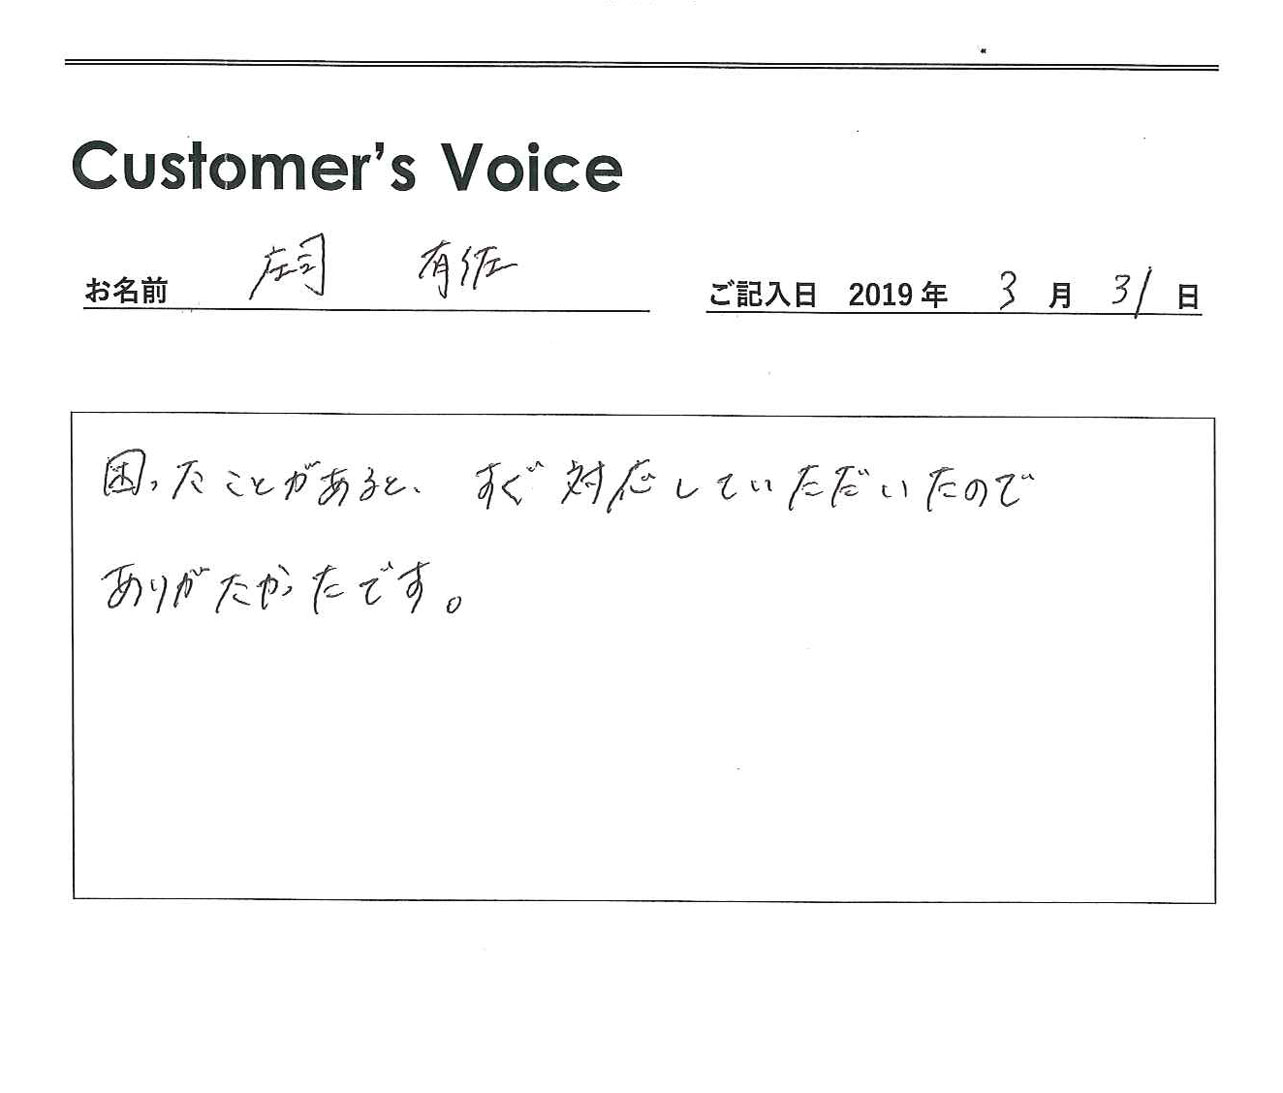 Customer's Voice
お名前 庄司 有佐
ご記入日 2019年 3月 31日
困ったことがあると、すぐ対応していただいたので
ありがたかったです。